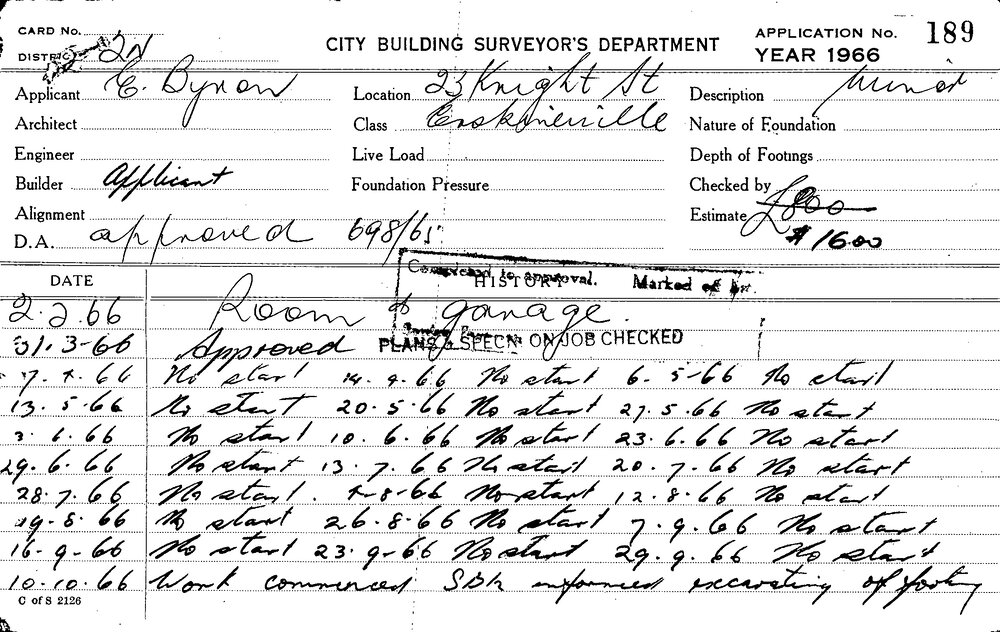 CARD No.
DISTRICT 2N
CITY BUILDING SURVEYOR'S DEPARTMENT
APPLICATION No. 189
YEAR 1966
Applicant E. Byron Location 23 Knight St Description Minor
Architect Class Erskineville Nature of Foundation
Engineer Live Load Depth of Footings
Builder Applicant Foundation Pressure Checked by
Alignment Estimate £800
D.A. approved 698/65 $1600
DATE HISTORY
to approval. Marked
2.2.66 Room & garage.
31.3-66 Approved PLANS & SPECN. ON JOB CHECKED
7.4.66 No start 14.4.66 No start 6-5-66 No start
13.5.66 No start 20.5.66 No start 27.5.66 No start
3.6.66 No start 10.6.66 No start 23.6.66 No start
29.6.66 No start 13.7.66 No start 20.7.66 No start
28.7.66 No start. 8-66 No start 12.8.66 No start
19.8.66 No start 26.8.66 No start 7.9.66 No start
16.9.66 No start 23.9.66 No start 29.9.66 No start
10.10.66 Work commenced informed excavating of footing
C of S 2126